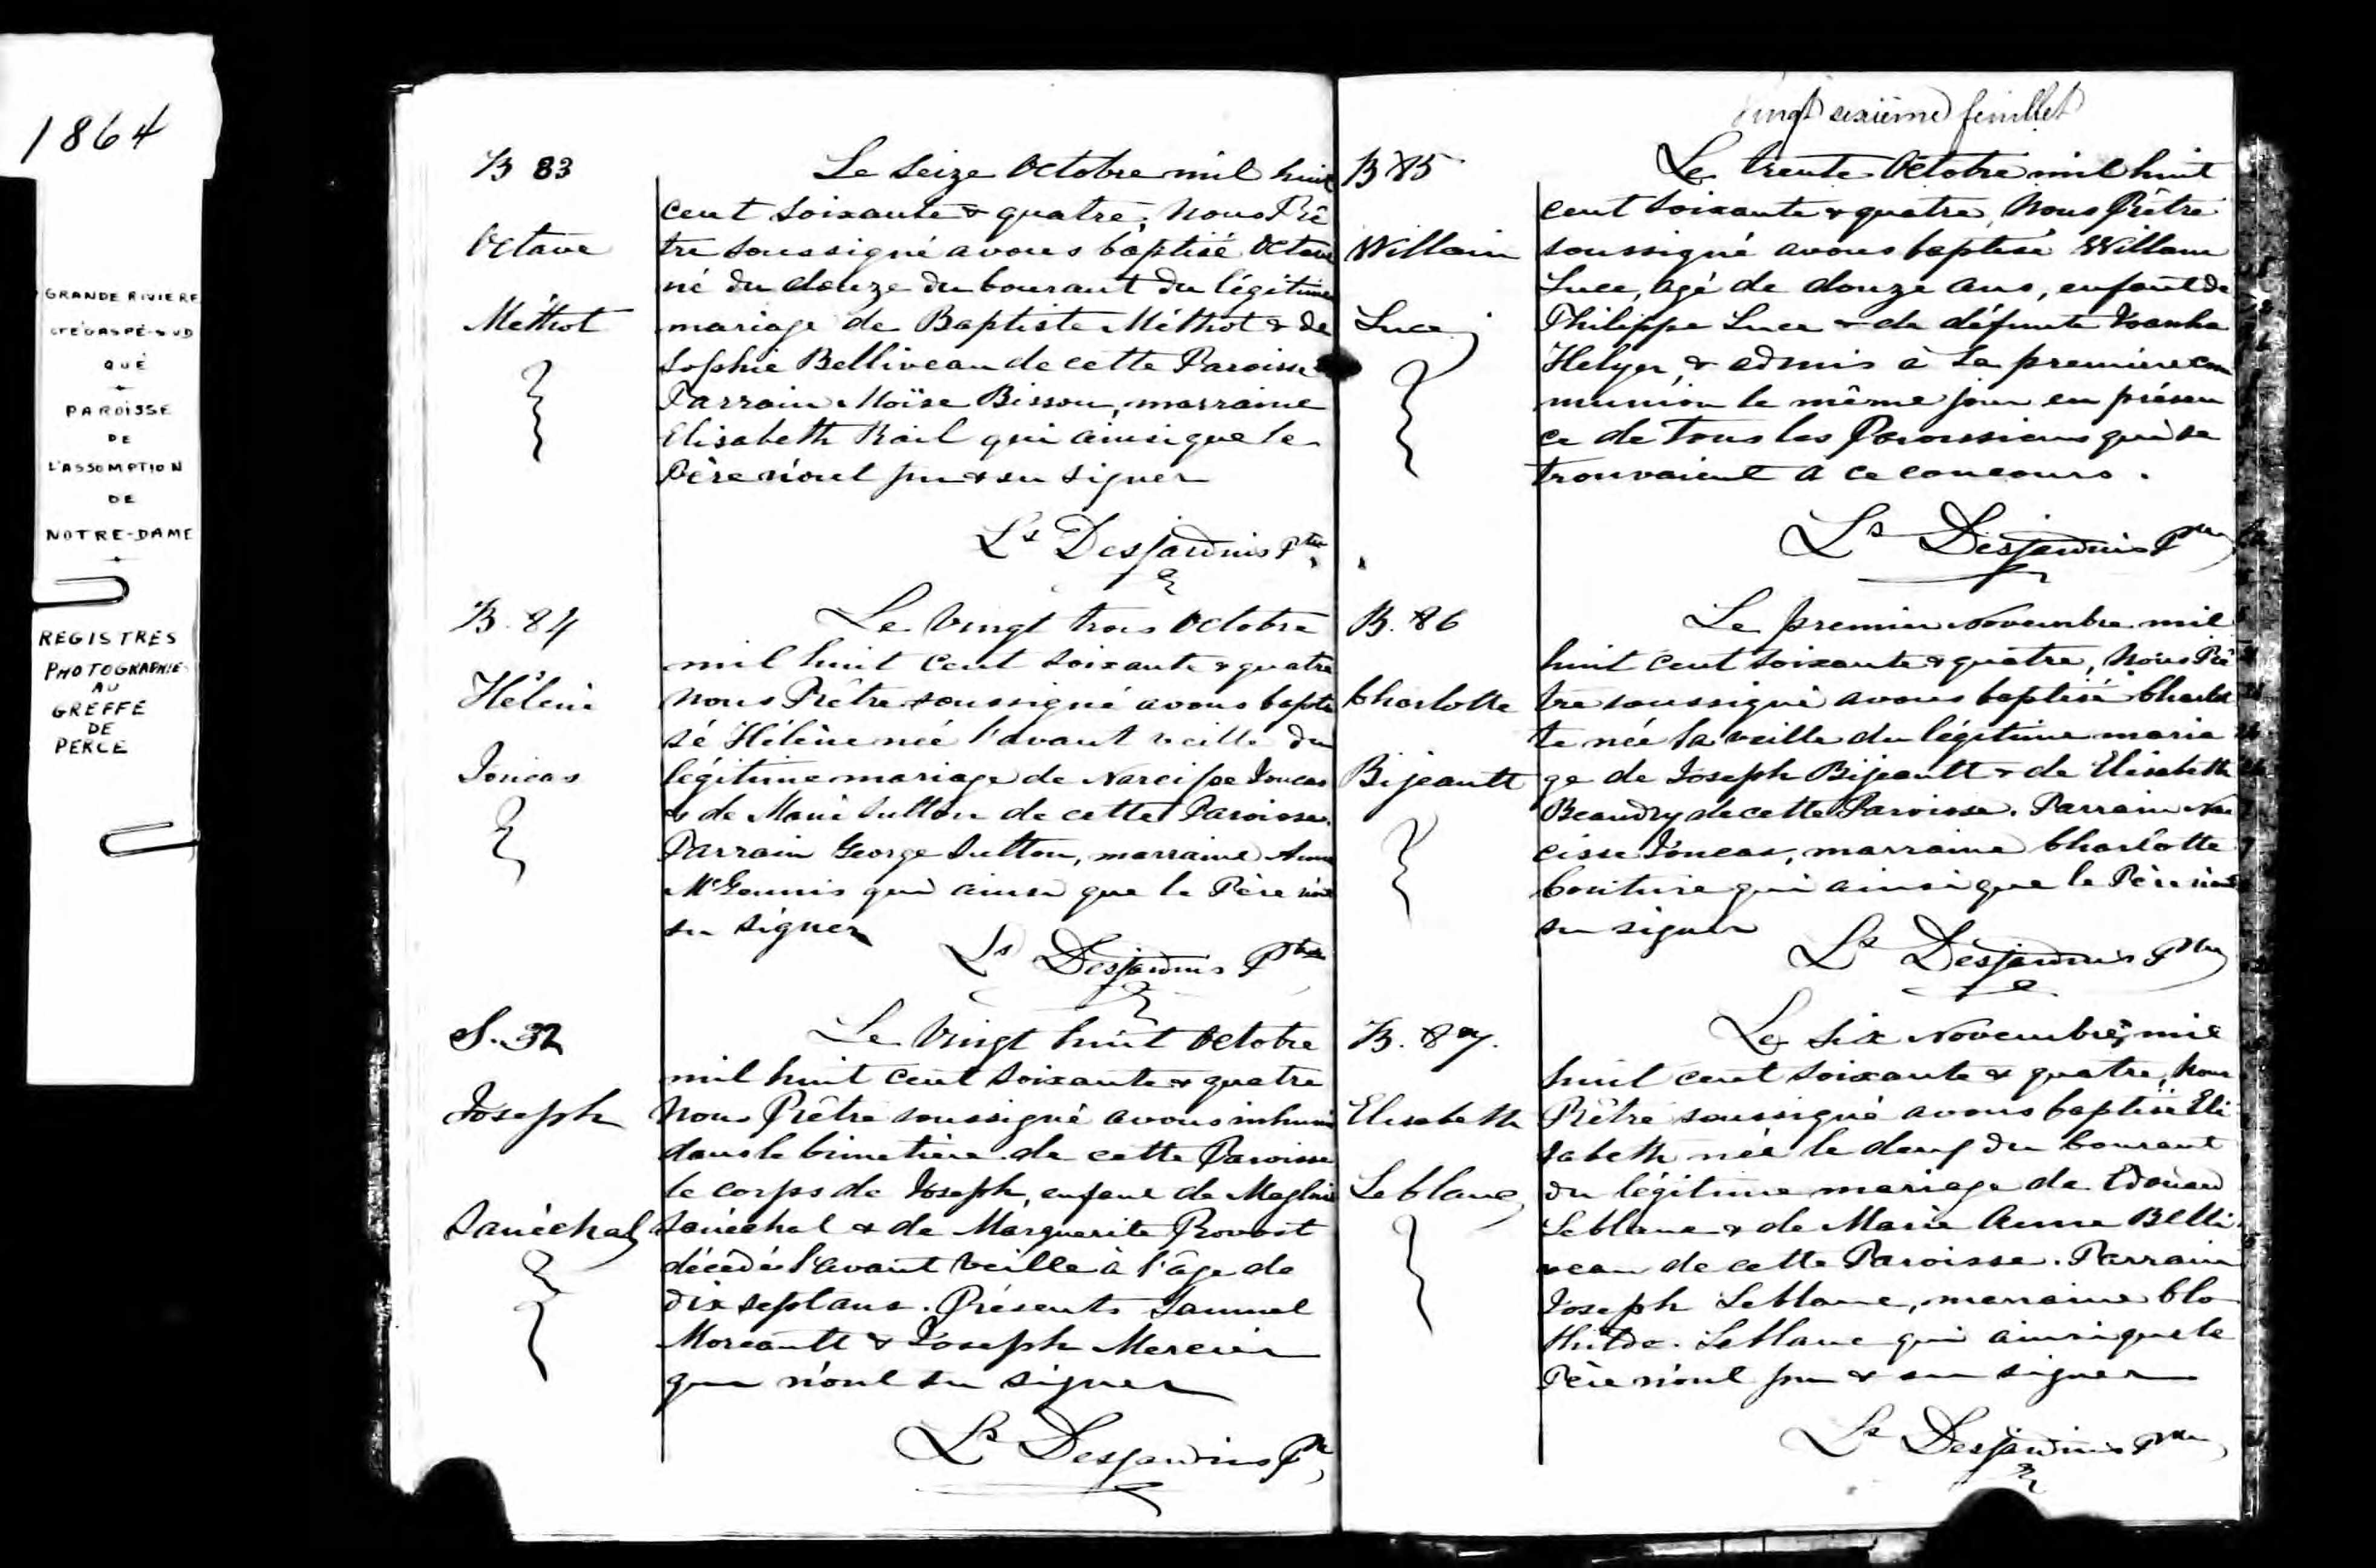 1864
GRANDE RIVIERE
CTÉ GASPÉ-SUD
QUÉ
PAROISSE
DE
L'ASSOMPTION
DE
NOTRE-DAME
REGISTRES
PHOTOGRAPHIÉS
AU
GREFFE
DE
PERCÉ
B 83
Octave
Méthot
Le Seize Octobre mil huit
cent soixante & quatre, Nous Prê
tre soussigné avons baptisé Octave
né du douze du courant du légitime
mariage de Baptiste Méthot & de
Sophie Belliveau de cette Paroisse
Parrain Moïse Bisson, marraine
Elisabeth Rail qui ainsi que le
Père n'ont pu & su signer
Ls Desjardins Ptre
B. 84
Hélène
Joncas
Le Vingt trois Octobre
mil huit cent soixante & quatre
Nous Prêtre soussigné avons bapti
sé Hélène née l'avant veille du
légitime mariage de Narcisse Joncas
& de Marie Sutton de cette Paroisse.
Parrain George Sutton, marraine Anne
McGennis qui ainsi que le Père n'ont
su signer
Ls Desjardins Ptre
S. 32
Joseph
Sanéchal
Le Vingt huit Octobre
mil huit cent soixante & quatre
Nous Prêtre soussigné avons inhumé
dans le Cimetière de cette Paroisse
le corps de Joseph, enfant de Magloire
Sanéchal & de Marguerite Provost
décédé l'avant veille à l'âge de
dix sept ans. Présents Samuel
Moreault & Joseph Mercier
qui n'ont su signer
Ls Desjardins Ptre
Vingt sixième feuillet
B 85
Willam
Luce
Le trente Octobre mil huit
cent soixante & quatre, Nous Prêtre
soussigné avons baptisé Willam
Luce, agé de douze ans, enfant de
Philippe Luce & de défunte
Helyer, & admis à la première com
munion le même jour en présen
ce de tous les Paroissiens qui se
trouvaient a ce concours.
Ls Desjardins Ptre
B. 86
Charlotte
Bijeault
Le premier Novembre mil
huit cent soixante & quatre, Nous Prê
tre soussigné avons baptisé Charlot
te née la veille du légitime maria
ge de Joseph Bijeault & de Elisabeth
Beaudry de cette Paroisse. Parrain Nar
cisse Joncas, marraine Charlotte
Couture qui ainsi que le Père n'ont
su signer
Ls Desjardins Ptre
B. 87.
Elisabeth
Leblanc
Le Six Novembre mil
huit cent soixante & quatre, Nous
Prêtre soussigné avons baptisé Eli
sabeth née le deux du Courant
du légitime mariage de Edouard
Leblanc & de Marie Anne Belli
veau de cette Paroisse. Parrain
Joseph Leblanc, marraine Clo
thilde Leblanc qui ainsi que le
Père n'ont pu & su signer
Ls Desjardins Ptre